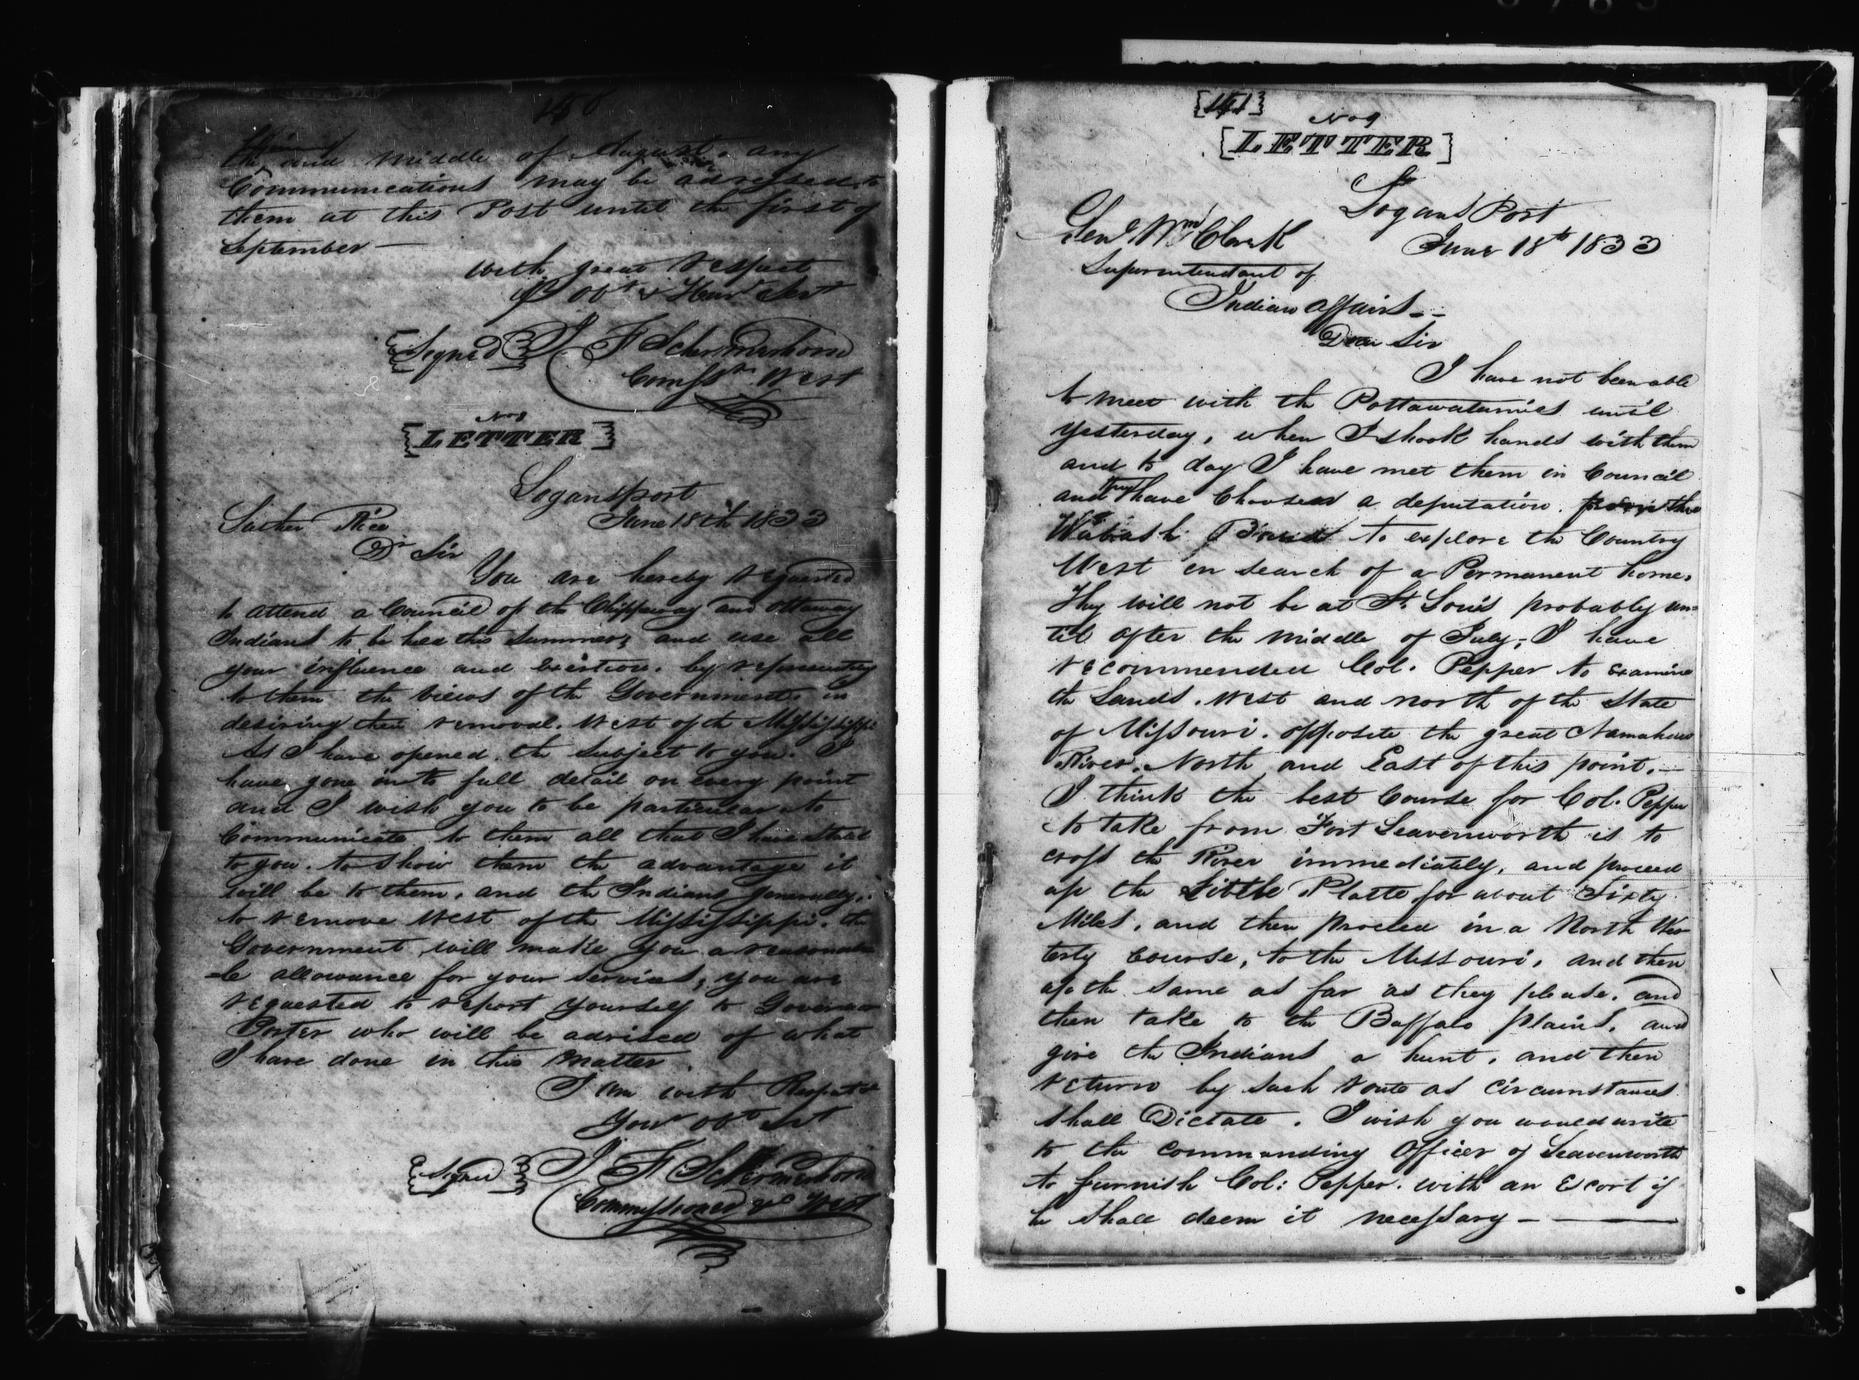 the mid middle of August. any
Communications may be addressed to
them at this Post until the first of
September —
with great respect
yr Obt & Humb Sert
[Signed] J F Schermerhorn
Comssr West
No 8
[LETTER]
Logansport
June 18th 1833
Luther Rice
Dr Sir
You are hereby requested
to attend a Council of the Chippeway and Ottaway
Indians to be held this summer; and use all
your influence and exertion. by representing
to them the views of the Government. in
desiring their removal. West of the Mississippi
As I have opened. the subject to you. I
have gone into full detail on every point
and I wish you to be particular to
Communicate to them all that I have stated
to you. to show them the advantage it
will be to them, and the Indians generally,
to remove West of the Mississippi. the
Government will make you a reasonab
=le allowance for your services; you are
requested to report yourself to Governor
Porter who will be advised of what
I have done in this matter
I am with Respect
Your Obt Srt
[Signed] J F Schermerhorn
Commissioner &c West
[141]
No 9
[LETTER]
Logans Port
June 18th 1833
Genl Wm Clark
Superintendant of
Indian Affairs --
Dear Sir
I have not been able
to meet with the Pottawatamies until
yesterday, when I shook hands with them
and to day I have met them in Council
and they have choosen a deputation. from the
Wabash Band to explore the Country
West in search of a Permanent home.
They will not be at St. Louis probably un-
til after the middle of July; I have
recommended Col. Pepper to examine
the Lands. West and north of the State
of Missouri. opposite the great Namahaw
River. North and East of this point. —
I think the best Course for Col. Pepper
to take from Fort Leavenworth is to
cross the River immediately, and proceed
up the Little Platte for about Sixty
Miles, and then proceed in a North Wes
terly Course, to the Missouri, and then
up the same as far as they please. and
then take to the Buffalo plains, and
give the Indians a hunt, and then
return by such route as circumstances
shall Dictate. I wish you would write
to the commanding Officer of Leavenworth
to furnish Col: Pepper. with an Escort if
he shall deem it necessary —